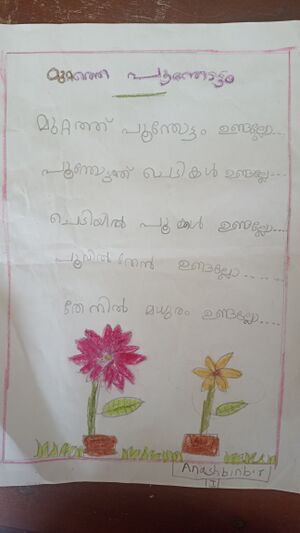 മുറ്റത്തെ പൂന്തോട്ടം
മുറ്റത്ത് പൂന്തോട്ടം ഉണ്ടല്ലോ...
പൂന്തോട്ടത്തി ചെടികൾ ഉണ്ടല്ലോ...
ചെടിയിൽ പൂക്കൾ ഉണ്ടല്ലോ....
പൂവിൽ തേൻ ഉണ്ടല്ലോ......
തേനിൽ മധുരം ഉണ്ടല്ലോ....
Anashbinbir
I